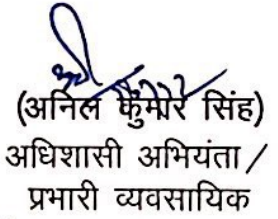 (अनिल कुमार सिंह)
अधिशासी अभियंता /
प्रभारी व्यवसायिक